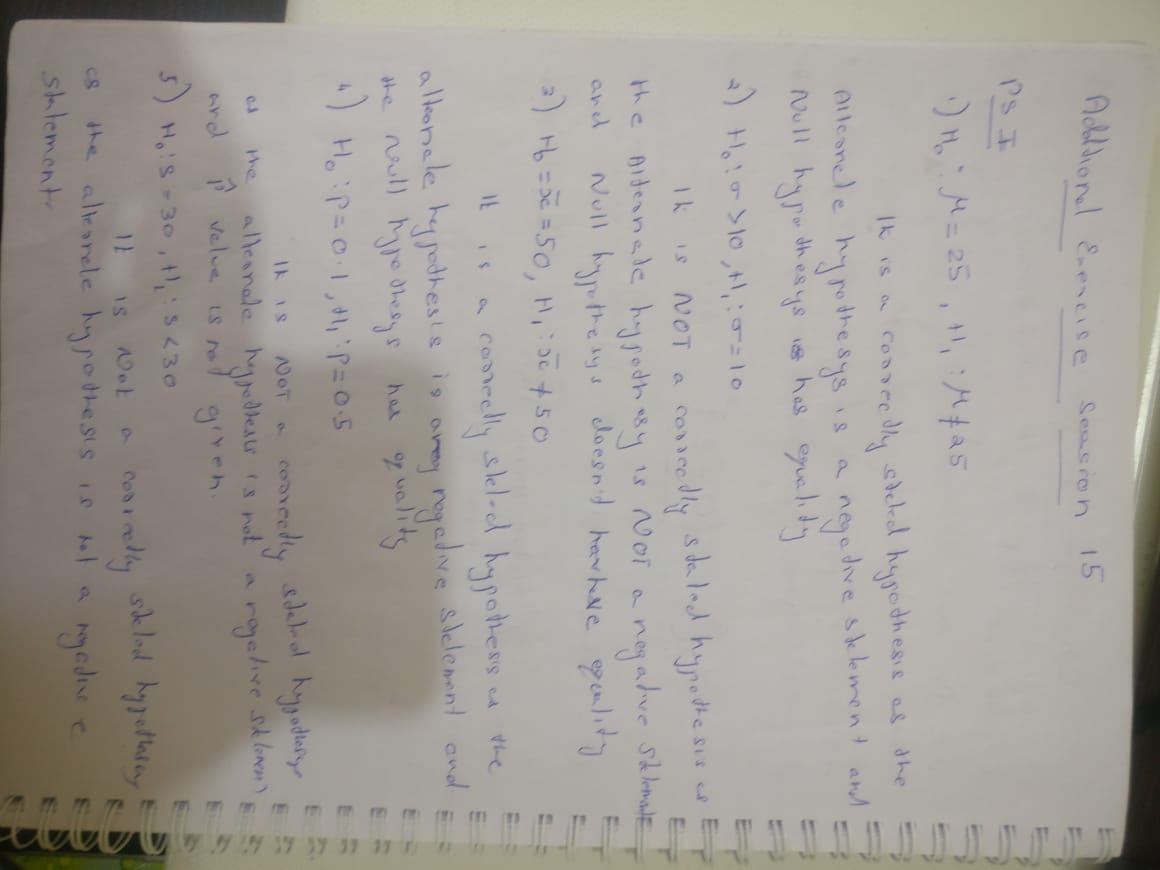 Additional Exercise Session 15
PS I
1) H₀ : μ = 25 , H₁ : μ ≠ 25
It is a correctly stated hypothesis as the
Alternate hypothesys is a negative statement and
Null hypothesys has equality
2) H₀ : σ > 10 , H₁ : σ = 10
It is NOT a correctly stated hypothesis as
the Alternate hypothesy is NOT a negative statement
and Null hypothesys doesn't have equality
3) H₀ = x̄ = 50 , H₁ : x̄ ≠ 50
It is a correctly stated hypothesis as the
alternate hypothesis is a negative statement and
the Null hypothesys has equality
4) H₀ : p = 0.1 , H₁ : p = 0.5
It is NOT a correctly stated hypothesys
as the alternate hypothesis is not a negative statement
and p̂ value is not given.
5) H₀ : s = 30 , H₁ : s < 30
It is Not a correctly stated hypothesys
as the alternate hypothesis is not a negative
statement.